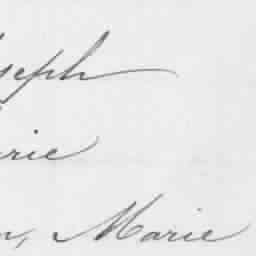 oseph
rie
n, Marie